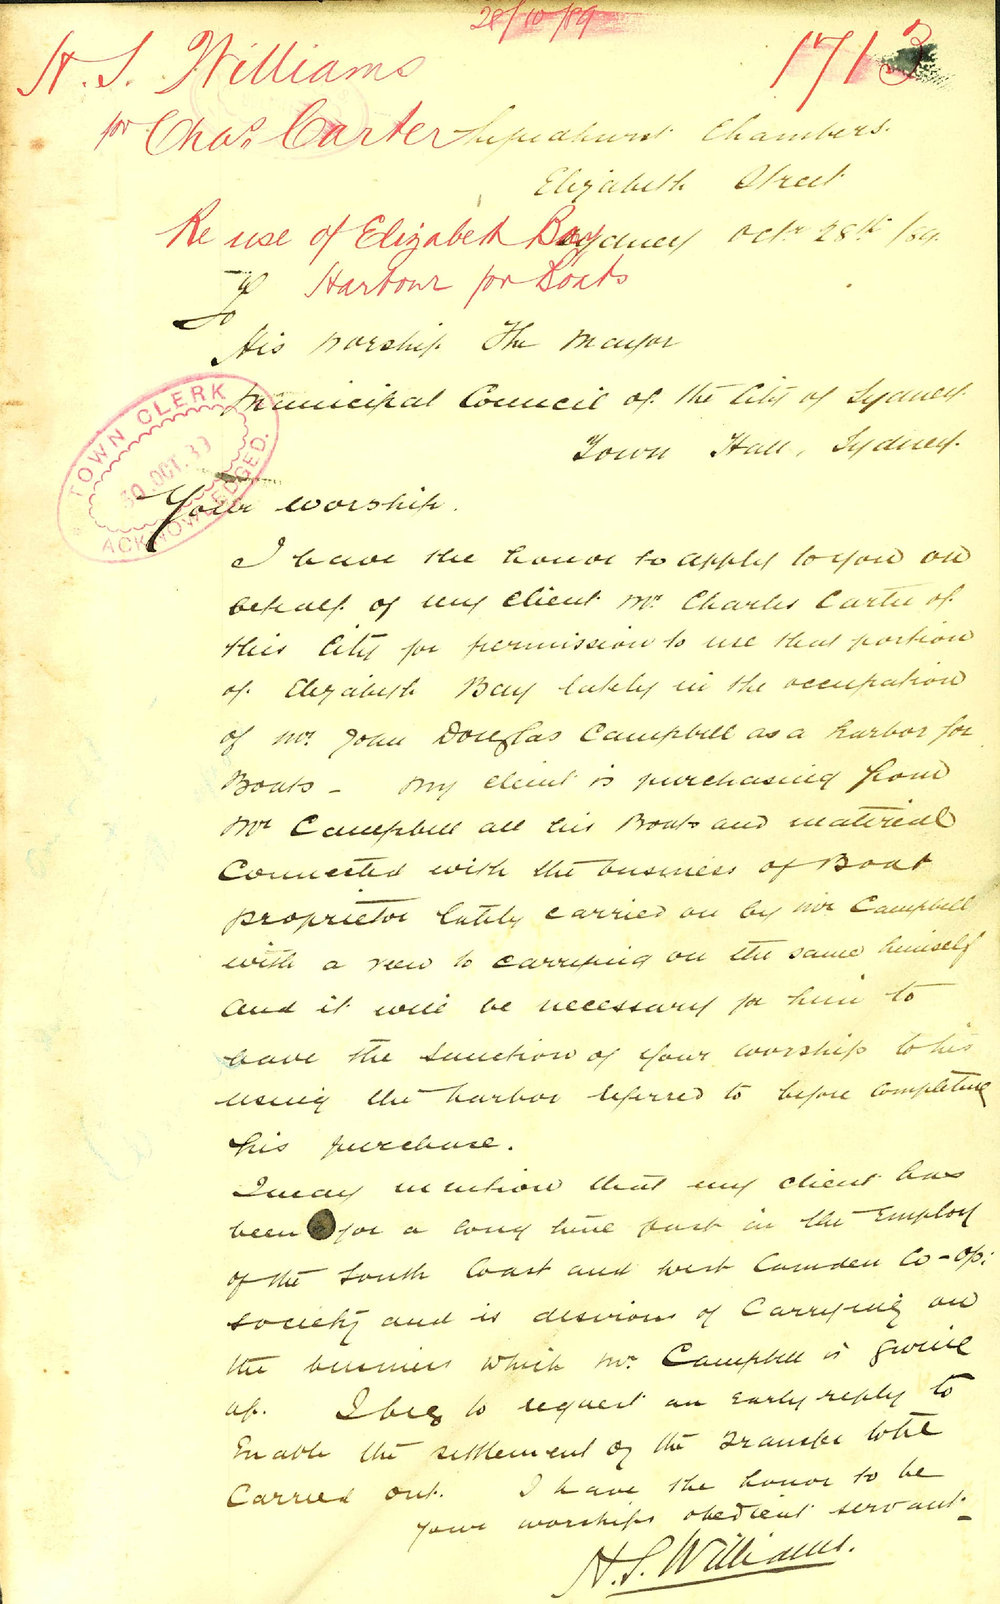 28/10/89
1713
H. S. Williams
for Chas. Carter
Chambers.
Elizabeth Street
Re use of Elizabeth Bay
Sydney Octr 28th /89.
Harbour for Boats
To
His Worship The Mayor
Municipal Council of the City of Sydney
Town Hall, Sydney.
TOWN CLERK
30. OCT. 89
ACKNOWLEDGED.
Your Worship.
I have the honor to apply to you on
behalf of my client Mr. Charles Carter of
this City for permission to use that portion
of Elizabeth Bay lately in the occupation
of Mr John Douglas Campbell as a harbor for
Boats - My client is purchasing from
Mr Campbell all his Boats and material
Connected with the business of Boat
proprietor lately carried on by Mr Campbell
with a view to carrying on the same himself
And it will be necessary for him to
have the sanction of your worship to his
using the harbor referred to before completing
his purchase.
I may mention that my client has
been for a long time past in the Employ
of the South Coast and West Camden Co-op:
Society and is desirous of Carrying on
the business which Mr. Campbell is giving
up. I beg to request an Early reply to
Enable the settlement of the Transfer to be
Carried out. I have the honor to be
Your worships obedient servant
H. S. Williams.